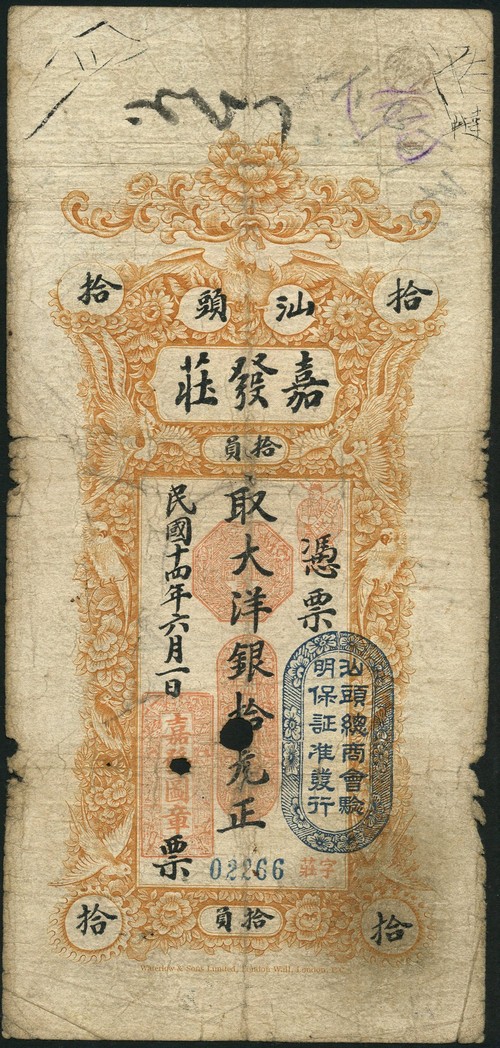 拾 汕頭 拾
嘉發莊
拾員
憑票
取大洋銀拾元正
民國十四年六月一日
票
汕頭總商會驗
明保証准發行
圖章
莊字
02266
拾 拾員 拾
Waterlow & Sons Limited, London Wall, London, E.C.